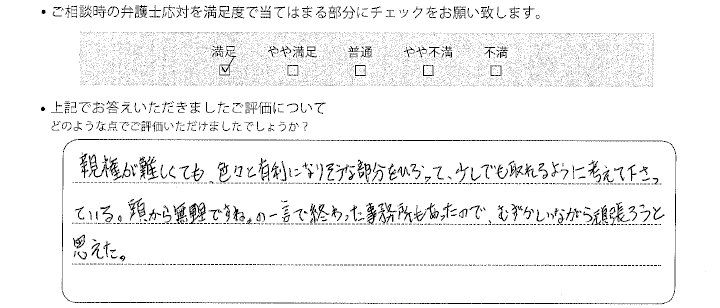 • ご相談時の弁護士応対を満足度で当てはまる部分にチェックをお願い致します。
満足 やや満足 普通 やや不満 不満
☑ □ □ □ □
• 上記でお答えいただきましたご評価について
どのような点でご評価いただけましたでしょうか？
親権が難しくても、色々と有利になりそうな部分をひろって、少しでも取れるように考えて下さっ
ている。頭から無理ですね。の一言で終わった事務所もあったので、むずかしいながら頑張ろうと
思えた。